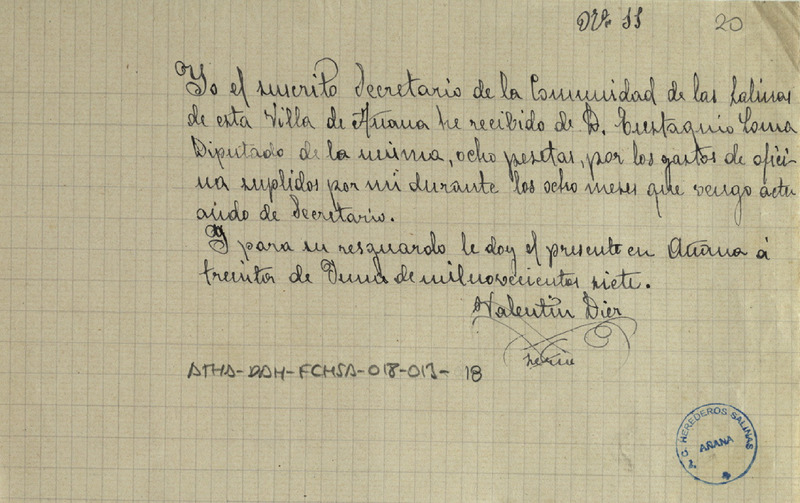 Nº 11 20
Yo el suscrito Secretario de la Comunidad de las Salinas
de esta Villa de Añana he recibido de D. Eustaquio Loma
Diputado de la misma, ocho pesetas, por los gastos de ofici-
na suplidos por mi durante los ocho meses que vengo actu
ando de Secretario.
Y para su resguardo le doy el presente en Añana á
treinta de Junio de mil novecientos siete.
Valentin Diez
ATHA-DAH-FCHSA-018-013- 18
C. HEREDEROS SALINAS
AÑANA